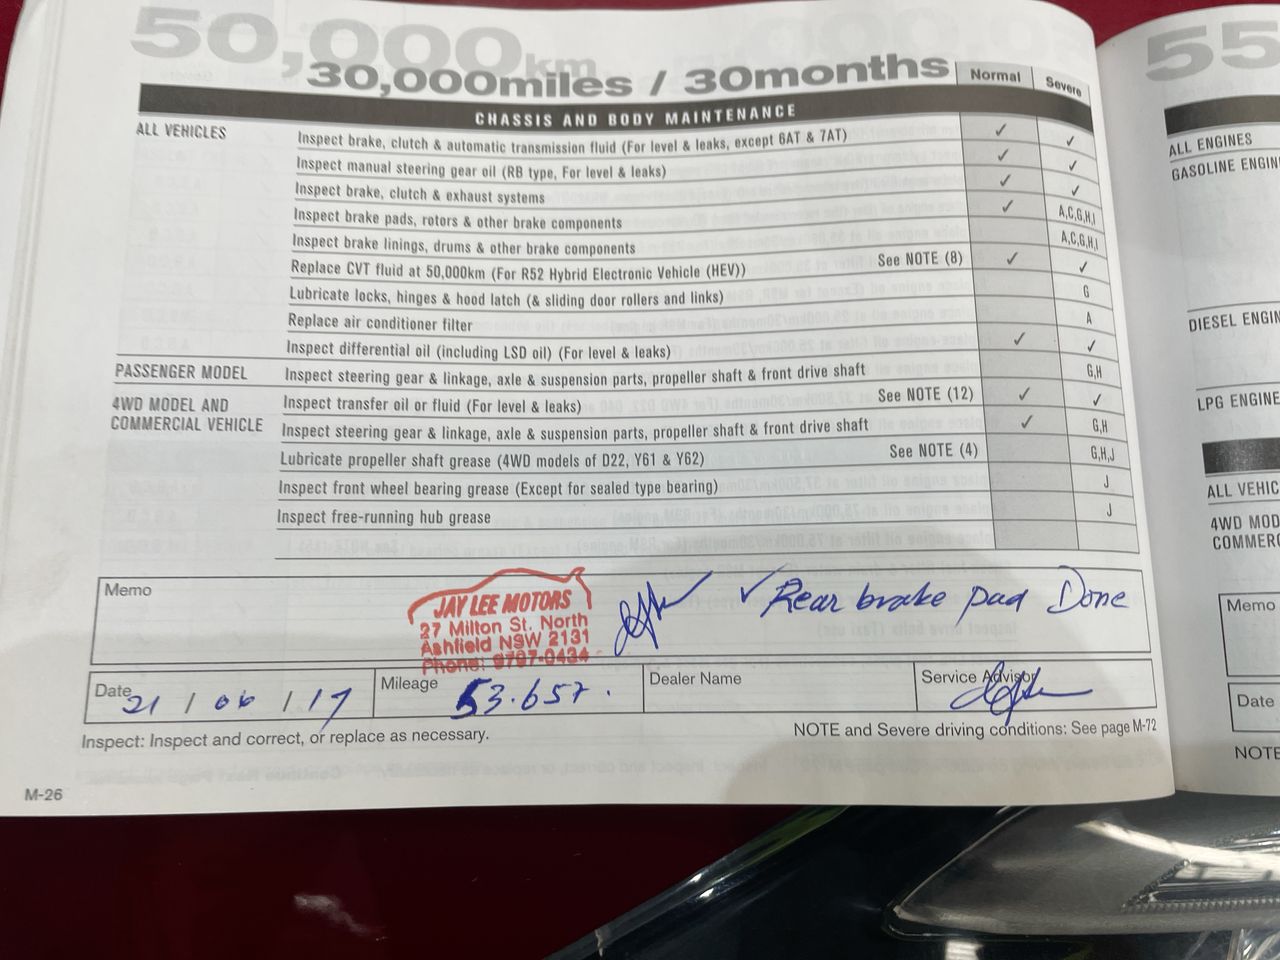 50,000km
30,000miles / 30months
Normal
Severe
CHASSIS AND BODY MAINTENANCE
ALL VEHICLES
Inspect brake, clutch & automatic transmission fluid (For level & leaks, except 6AT & 7AT) ✓ ✓
Inspect manual steering gear oil (RB type, For level & leaks) ✓ ✓
Inspect brake, clutch & exhaust systems ✓ ✓
Inspect brake pads, rotors & other brake components ✓ A,C,G,H,I
Inspect brake linings, drums & other brake components A,C,G,H,I
Replace CVT fluid at 50,000km (For R52 Hybrid Electronic Vehicle (HEV)) See NOTE (8) ✓ ✓
Lubricate locks, hinges & hood latch (& sliding door rollers and links) G
Replace air conditioner filter A
Inspect differential oil (including LSD oil) (For level & leaks) ✓ ✓
PASSENGER MODEL
Inspect steering gear & linkage, axle & suspension parts, propeller shaft & front drive shaft G,H
4WD MODEL AND
COMMERCIAL VEHICLE
Inspect transfer oil or fluid (For level & leaks) See NOTE (12) ✓ ✓
Inspect steering gear & linkage, axle & suspension parts, propeller shaft & front drive shaft ✓ G,H
Lubricate propeller shaft grease (4WD models of D22, Y61 & Y62) See NOTE (4) G,H,J
Inspect front wheel bearing grease (Except for sealed type bearing) J
Inspect free-running hub grease J
Memo
JAY LEE MOTORS
27 Milton St. North
Ashfield NSW 2131
Phone: 9797-0434
✓ Rear brake pad Done
Date 21 / 06 / 17
Mileage 53.657.
Dealer Name
Service Advisor
Inspect: Inspect and correct, or replace as necessary.
NOTE and Severe driving conditions: See page M-72
M-26
55
ALL ENGINES
GASOLINE
DIESEL
LPG
ALL
4WD
Memo
Date